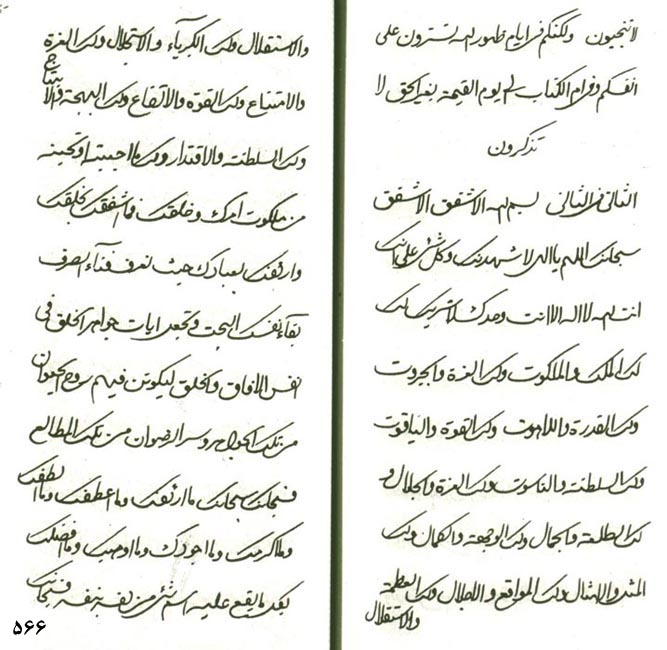 لاتنجيون ولكنكم فى ايام ظهور الله تسترون على
انفسكم وفى ام الكتاب الى يوم القيمة بغير الحق لا
تذكرون
الثانى فى الثانى بسم الله الاشفق الاشفق
سبحانك اللهم يا الهى لاشهدنك وكل شئ على انك
انت الله لا اله الا انت وحدك لا شريك لك
لك الملك والملكوت ولك العزة والجبروت
ولك القدرة واللاهوت ولك القوة والياقوت
ولك السلطنة والناسوت ولك العزة والجلال و
لك الطلعة والجمال ولك الوجهة والكمال ولك
المثل والامثال ولك المواقع والاجلال ولك العظمة
والاستقلال
والاستقلال ولك الكبرياء والاستجلال ولك العزة
والامتناع ولك القوة والارتفاع ولك البهجة والابتهاج
ولك السلطنة والاقتدار ولك ما احببته او تحبنه
من ملكوت امرك وخلقك فما اشفقك بخلقك
وارئفك بعبادك حيث تعرف فناء الصرف
بقاء نفسك البحت وتجعل ايات جواهر الخلق فى
انفس الافاق والخلق ليكونن فيهم روح الحيوان
من تلك الجواهر وسر الرضوان من تلك المطالع
فسبحانك سبحانك ما ارئفك وما اعطفك وما الطفك
وما اكرمك وما اجودك وما اوهبك وما افضلك
بكل ما يقع عليه اسم شئ من نفسه بنفسه فسبحانك
۵۶۶